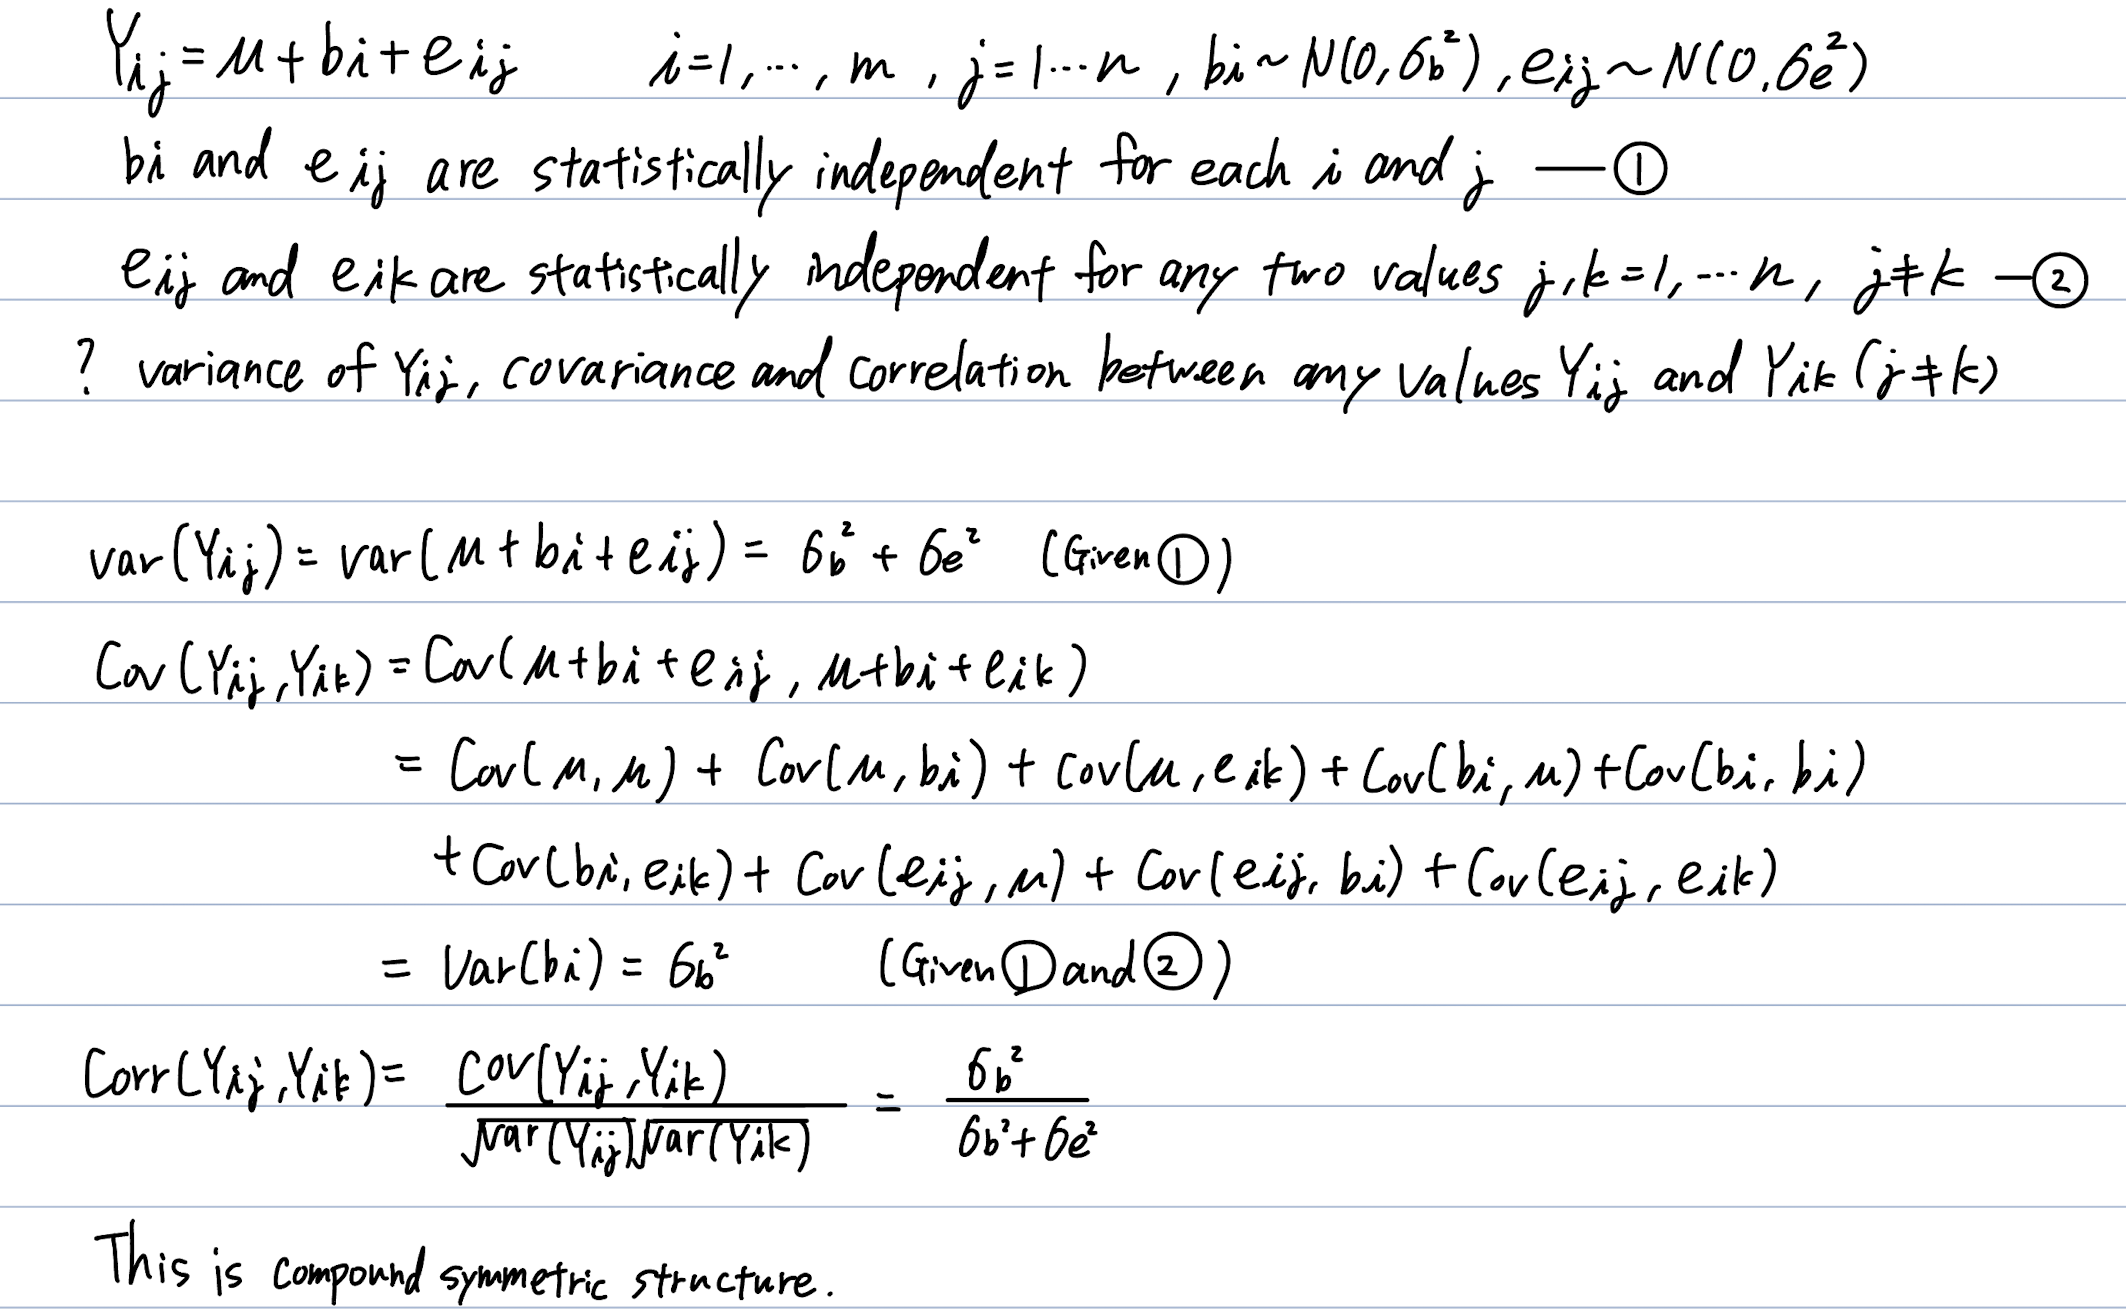 Yij = μ + bi + eij  i=1,…,m , j=1…n , bi ~ N(0,σb²), eij ~ N(0,σe²)
bi and eij are statistically independent for each i and j —①
eij and eik are statistically independent for any two values j,k=1,…n, j≠k —②
? variance of Yij, covariance and correlation between any values Yij and Yik (j≠k)
var(Yij) = var(μ+bi+eij) = σb² + σe² (Given ①)
Cov(Yij,Yik) = Cov(μ+bi+eij, μ+bi+eik)
= Cov(μ,μ) + Cov(μ,bi) + cov(μ,eik) + Cov(bi,μ) + Cov(bi,bi)
+ Cov(bi,eik) + Cov(eij,μ) + Cov(eij,bi) + Cov(eij,eik)
= Var(bi) = σb² (Given ① and ②)
Corr(Yij,Yik) = cov(Yij,Yik) / √var(Yij) √var(Yik) = σb² / σb²+σe²
This is compound symmetric structure.